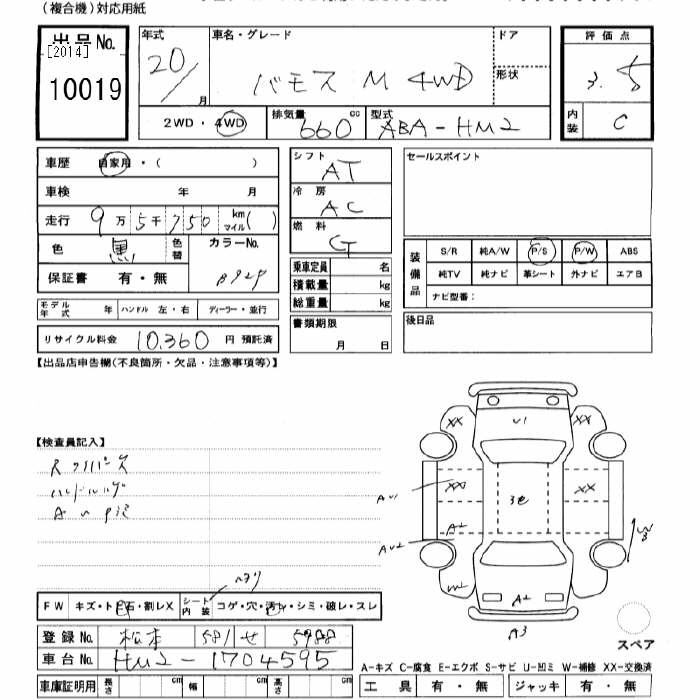 (複合機)対応用紙
出品No.
[2014]
10019
年式
20/
月
車名・グレード
バモス M 4WD
ドア
形状
評価点
3.5
内装
C
2WD・4WD
排気量
660
cc
型式
ABA-HM2
車歴 自家用・( )
車検 年 月
走行 9万5千750 km マイル( )
色 黒 色替 カラーNo.
B92P
保証書 有・無
モデル年式 年 ハンドル 左・右 ディーラー・並行
リサイクル料金 10,360 円 預託済
シフト
AT
冷房
AC
燃料
G
乗車定員 名
積載量 kg
総重量 kg
書類期限
月 日
セールスポイント
装備品
S/R 純A/W P/S P/W ABS
純TV 純ナビ 革シート 外ナビ エアB
ナビ型番:
後日品
【出品店申告欄(不良箇所・欠品・注意事項等)】
【検査員記入】
FW キズ・トビ石・割レX シート内装 コゲ・穴・汚レ・シミ・破レ・スレ
XX U1 XX
XX 3色 XX
AU1
A2
AU2
W2
W3
A2
A3
スペア
登録No. 松本 581 せ 5988
車台No. HM2-1704595
車庫証明用 長さ cm 幅 cm 高さ cm
A-キズ C-腐食 E-エクボ S-サビ U-凹ミ W-補修 XX-交換済
工具 有・無 ジャッキ 有・無